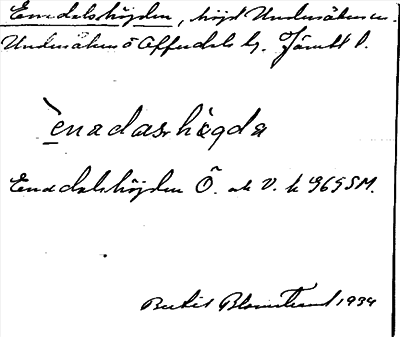 Enadalshöjden, höjd Undersåkers sn.
Undersåkers o Offerdals tg. Jämtl l.
`enadashøgda
Enadalshöjden Ö. ok V. k 965 SM.
Bertil Blomstrand 1934